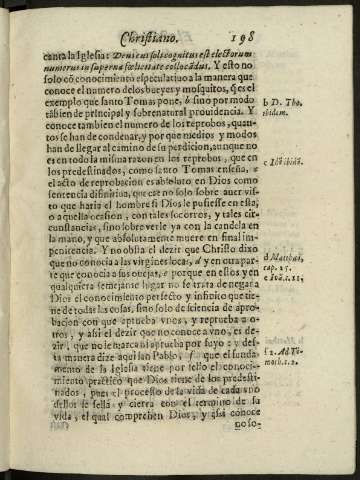 Christiano. 198
canta la Iglesia: Deus cui soli cognitus est electorum
numerus in superna fœlicitate collocādus. Y esto no
solo cō conocimiento especulatiuo a la manera que
conoce el numero de los bueyes y mosquitos, q̃ es el
exemplo que santo Tomas pone, b sino por modo
tābien de principal y sobrenatural prouidencia. Y
conoce tambien el numero de los reprobos, quan-
tos se han de condenar, y por que medios y modos
han de llegar al camino de su perdicion, aunque no
es en todo la misma razon en los reprobos, que en
los predestinados, como santo Tomas enseña, c
el acto de reprobacion es absoluto en Dios como
sentencia difinitiua, que cae no solo sobre auer vis-
to que haria el hombre si Dios le pusiesse en esta,
o a quella ocasion, con tales socorros, y tales cir-
cunstancias, sino sobre verle ya con la candela en
la mano, y que absolutamente muere en final im-
penitencia. Y no obsta el dezir que Christo dixo
que no conocia a las virgines locas, d y en otra par-
te que conocia a sus ouejas, e porque en estos y en
qualquiera semejante lugar no se trata de negar a
Dios el conocimiento perfecto y infinito que tie-
ne de todas las cosas, sino solo de sciencia de apro-
bacion con que aprueba vnos, y reprueba a o-
tros, y assi el dezir que no conoce a vno, es de-
zir, que no le marca ni aprueba por suyo: y des-
ta manera dize aqui san Pablo, f que el funda-
mento de la Iglesia tiene por sello el conoci-
miento practico que Dios tiene de los predesti-
nados, pues el processo de la vida de cada vno
dellos se sella y cierra con el termino de su
vida, el qual comprehen Dios, y assi conoce
no so-
b D. Tho.
ibidem.
c Ibi ibidē.
d Matthæi,
cap. 25.
e Ioā. 1.11.
f 2. Ad Ti-
moth. 1.2.